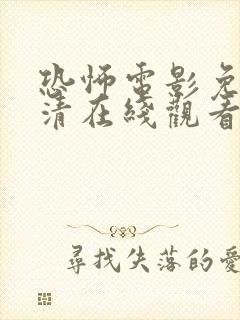 恐怖電影免
清在綫觀看
尋找失落的愛